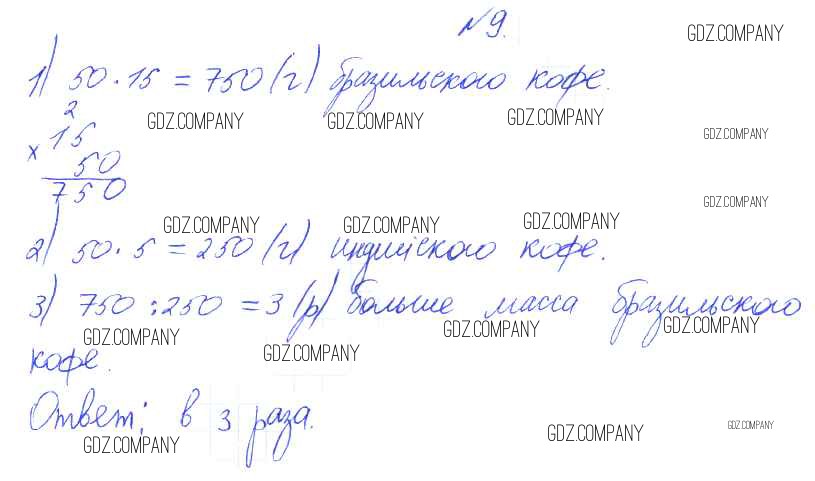 №9.
GDZ.COMPANY
1) 50 · 15 = 750 (г) бразильского кофе.
GDZ.COMPANY GDZ.COMPANY GDZ.COMPANY
2
× 15
GDZ.COMPANY
50
750
GDZ.COMPANY
GDZ.COMPANY GDZ.COMPANY GDZ.COMPANY
2) 50 · 5 = 250 (г) индийского кофе.
3) 750 : 250 = 3 (р) больше масса бразильского
GDZ.COMPANY GDZ.COMPANY GDZ.COMPANY GDZ.COMPANY
кофе.
Ответ: в 3 раза.
GDZ.COMPANY GDZ.COMPANY GDZ.COMPANY